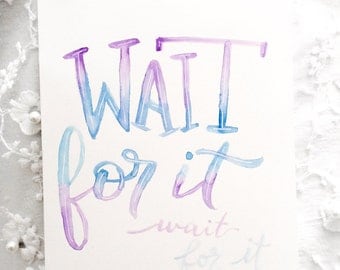 WAIT
for it
wait
for it